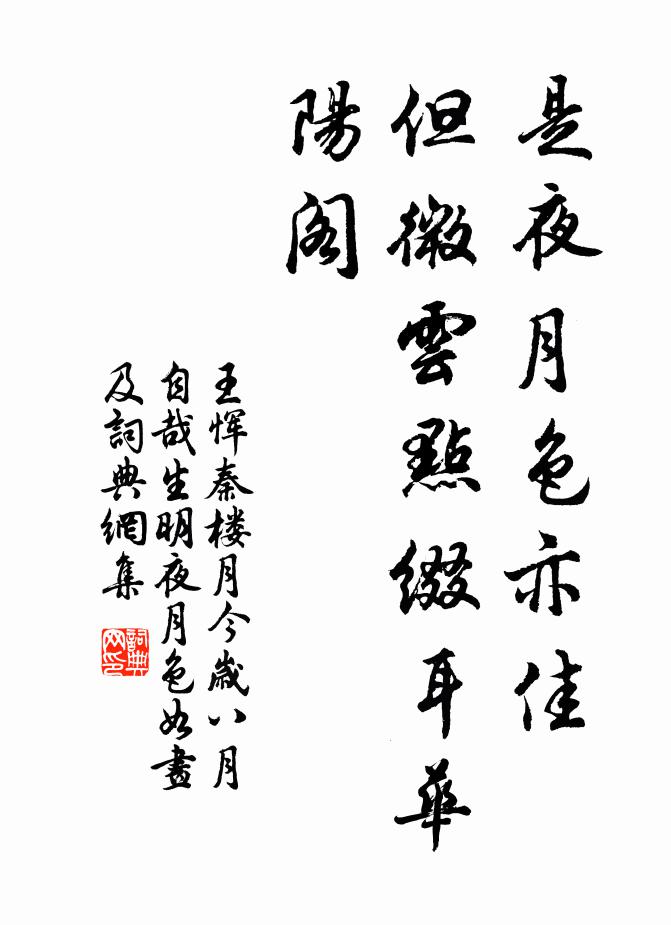 是夜月色亦佳
但微雲點綴耳華
陽閣
王惲秦楼月今歲八月
自哉生明夜月色如晝
及詞典網集
詞典
网印